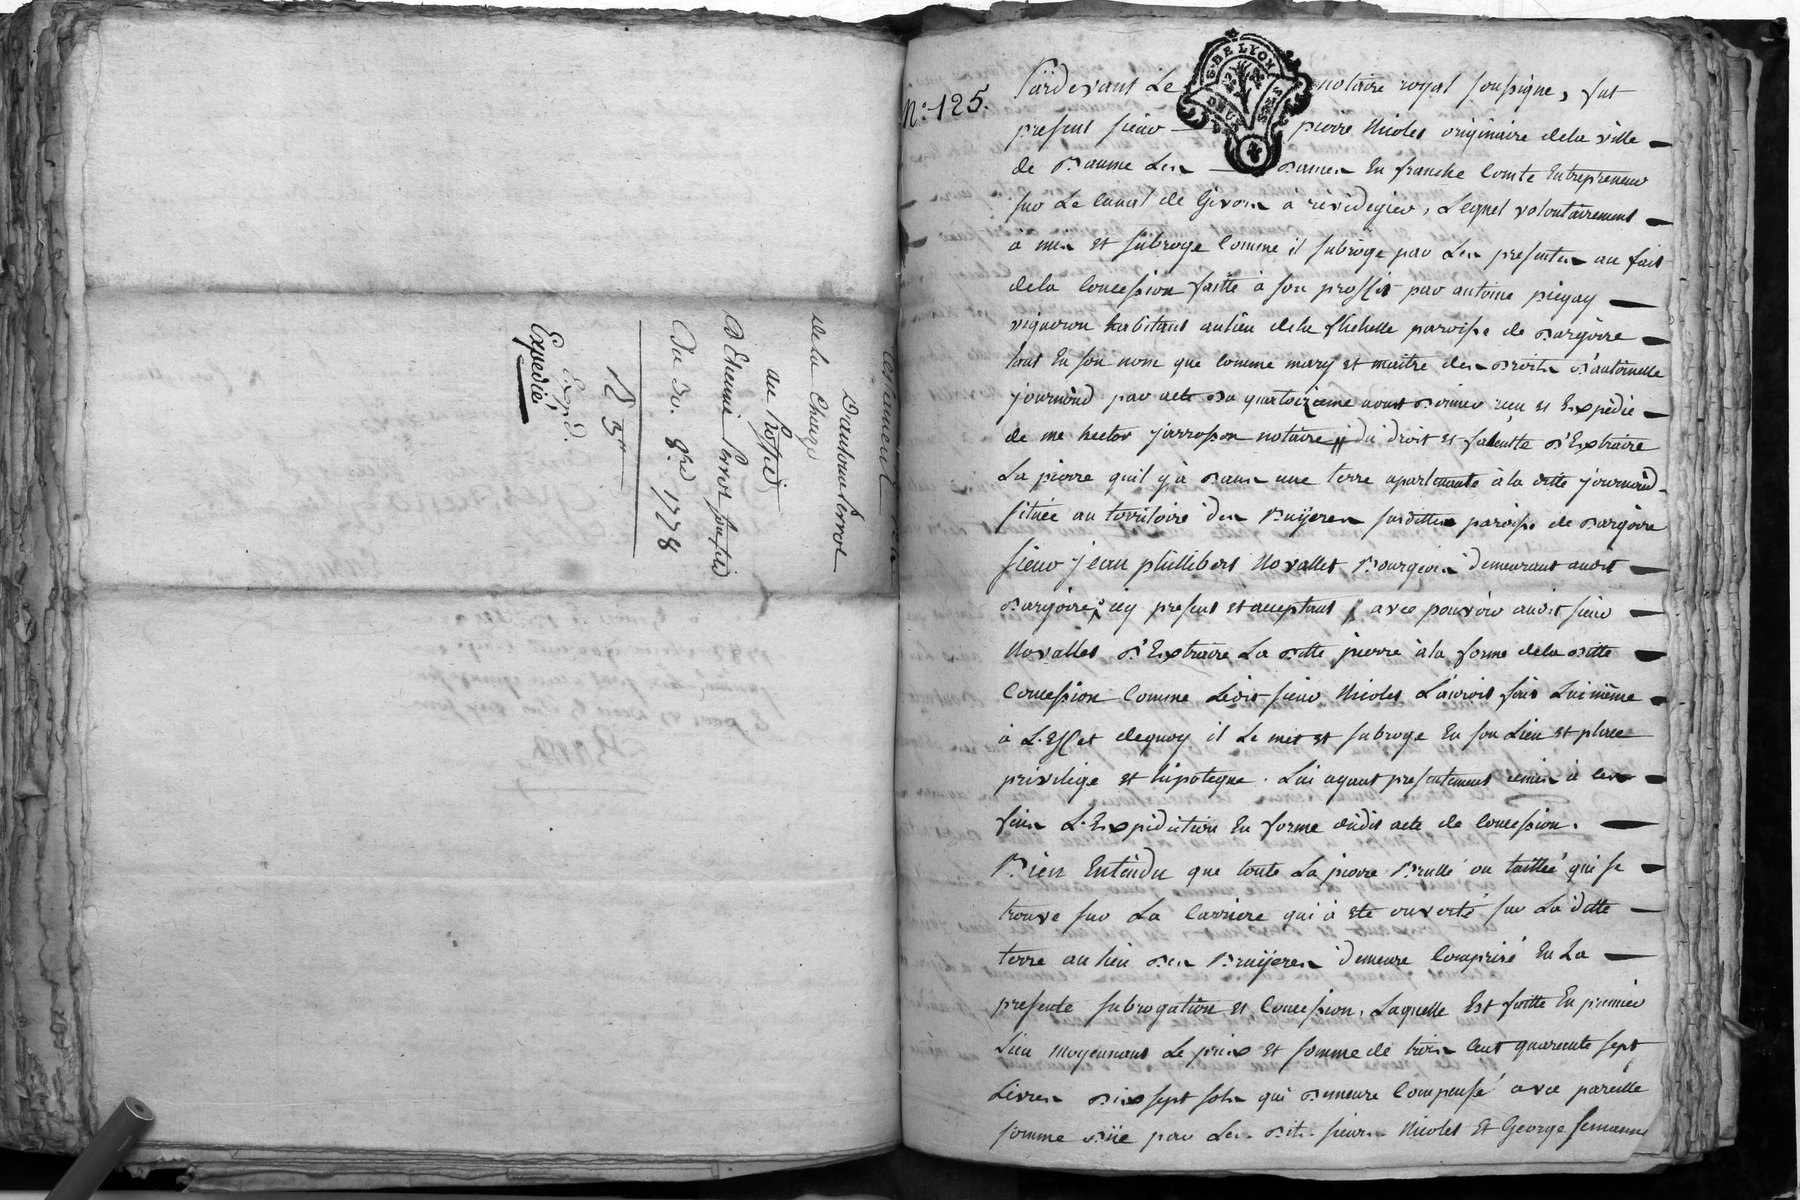 testament
D'antoine Perrot
de la Chaize
au Proffit
D'Etienne Perrot son fils
Du 30. 8bre 1778
Expd.
Expedié
N°. 125.
G. DE LYON
Pardevant Le notaire royal soussigné, fut
present sieur pierre Nicolet originaire dela ville
de Baume Les Dames En franche Comté Entrepreneur
sur Le Canal de Givors à rivedegier, Lequel volontairement
à mis et subrogé Comme il subroge par Les presentes au fait
dela Concession faitte à son proffit par antoine piegay
vigneron habitant aulieu dela paroisse de Dargoire
tant En son nom que Comme mary et maitre des Droits D'antoinette
journoud par acte Du quatorzieme aoust Dernier recu et Expedié
de me hector jarrosson notaire, du droit et faculté D'Extraire
La pierre quil y à Dans une terre apartenante à la ditte journoud
située au territoire des Bruyeres susditte paroisse de Dargoire
sieur jean phillibert Novallet Bourgeois demeurant audit
Dargoire, icy present et acceptant, avec pouvoir audit sieur
Novallet D'Extraire La Ditte pierre à la forme dela Ditte
Concession Comme Ledit sieur Nicolet L'auroit fait Lui même
à L'Effet dequoy il Le met et subroge En son Lieu et place
privilege et hipoteque. Lui ayant presentement remis à ces
fins L'Expedition En forme dudit acte de Concession.
Bien Entendu que toute La pierre Brutte ou taillée qui se
trouve sur La Carriere qui à eté ouverte sur La ditte
terre au lieu Des Bruijeres demeure Comprise En La
presente subrogation et Concession, Laquelle Est faitte En premier
Lieu moyennant Le prix et somme de trois Cent quarente sept
Livres Dix sept sols qui Demeure Compensé avec pareille
somme Düe par Les Dits sieurs Nicolet Et George